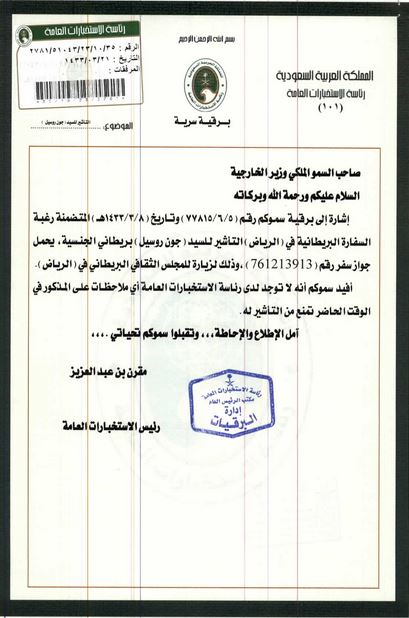 رئاسة الاستخبارات العامة
الرقم : ٢٧٨١/٥١٠٤٣/٢٣/١٠/٣٥
التاريخ : ١٤٣٣/٠٣/٢١
المرفقات :
بسم الله الرحمن الرحيم
المملكة العربية السعودية
رئاسة الاستخبارات العامة
(١٠١)
برقية سرية
الموضوع: (التأشير للسيد/ جون روسيل)
صاحب السمو الملكي وزير الخارجية
السلام عليكم ورحمة الله وبركاته
إشارة إلى برقية سموكم رقم (٧٧٨١٥/٦/٥) وتاريخ (١٤٣٣/٣/٨هـ) المتضمنة رغبة
السفارة البريطانية في (الرياض) التأشير للسيد (جون روسيل) بريطاني الجنسية، يحمل
جواز سفر رقم (761213913) ،وذلك لزيارة للمجلس الثقافي البريطاني في (الرياض).
أفيد سموكم أنه لا توجد لدى رئاسة الاستخبارات العامة أي ملاحظات على المذكور في
الوقت الحاضر تمنع من التأشير له.
آمل الإطلاع والإحاطة،،، وتقبلوا سموكم تحياتي . , , ,
مقرن بن عبد العزيز
رئاسة الاستخبارات العامة
مكتب الرئيس العام
إدارة
البرقيات
رئيس الاستخبارات العامة